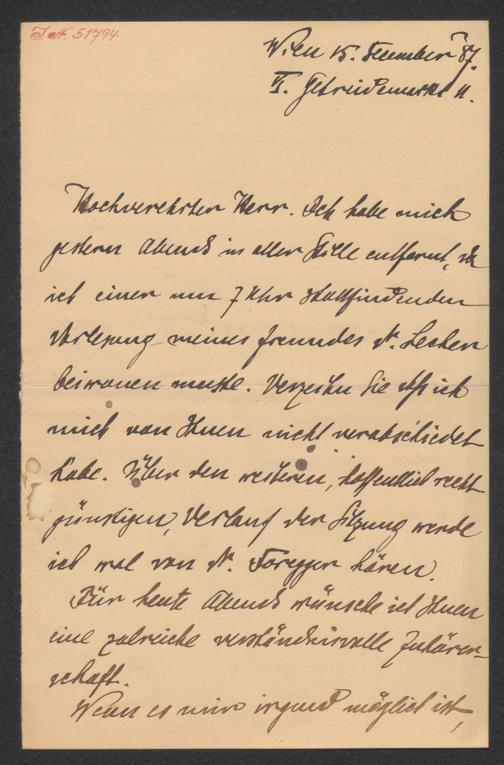 J.N. 51794
Wien 15. Dezember 87.
VI. Getreidemarkt 11.
Hochverehrter Herr. Ich habe mich
gestern Abend in aller Stille entfernt, da
ich einer um 7 Uhr stattfindenden
Vorlesung meines Freundes Dr. Lecher
beiwonen muste. Verzeihn Sie daß ich
mich von Ihnen nicht verabschiedet
habe. Über den weiteren, hoffentlich recht
günstigen, Verlauf der Sitzung werde
ich wol von Dr. Foregger hören.
Für heute Abend wünsche ich Ihnen
eine zalreiche verständnisvolle Zuhörer-
schaft.
Wenn es mir irgend möglich ist,